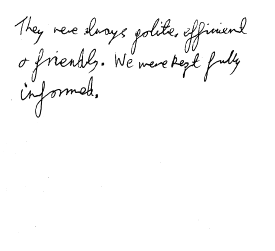 They were always polite, efficient
& friendly. We were kept fully
informed.